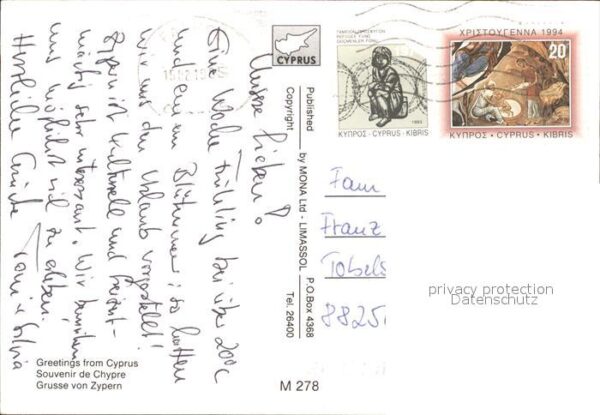 Unsre Lieben!
Eine Woche Frühling bei über 20°C
und ein Blütenmeer; so hatten
wir uns den Urlaub vorgestellt!
Zypern ist kulturell und
sehr interessant. Wir
uns möglichst viel zu erleben.
Herzliche Grüße
Greetings from Cyprus
Souvenir de Chypre
Grusse von Zypern
CYPRUS
Published by MONA Ltd - LIMASSOL P.O.Box 4368
Copyright Tel. 26400
M 278
ΤΑΜΕΙΟΝ ΠΡΟΣΦΥΓΩΝ
REFUGEE FUND
GÖÇMENLER FONU
ΚΥΠΡΟΣ·CYPRUS·KIBRIS
ΧΡΙΣΤΟΥΓΕΝΝΑ 1994
20
ΚΥΠΡΟΣ • CYPRUS • KIBRIS
Fam
Franz
Tobels
8825
privacy protection
Datenschutz